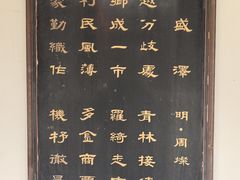 盛澤
明·周燦
越分歧處 青林接
鄉成一市 羅綺走
利民風薄 多金商
家勤織作 機杼徹